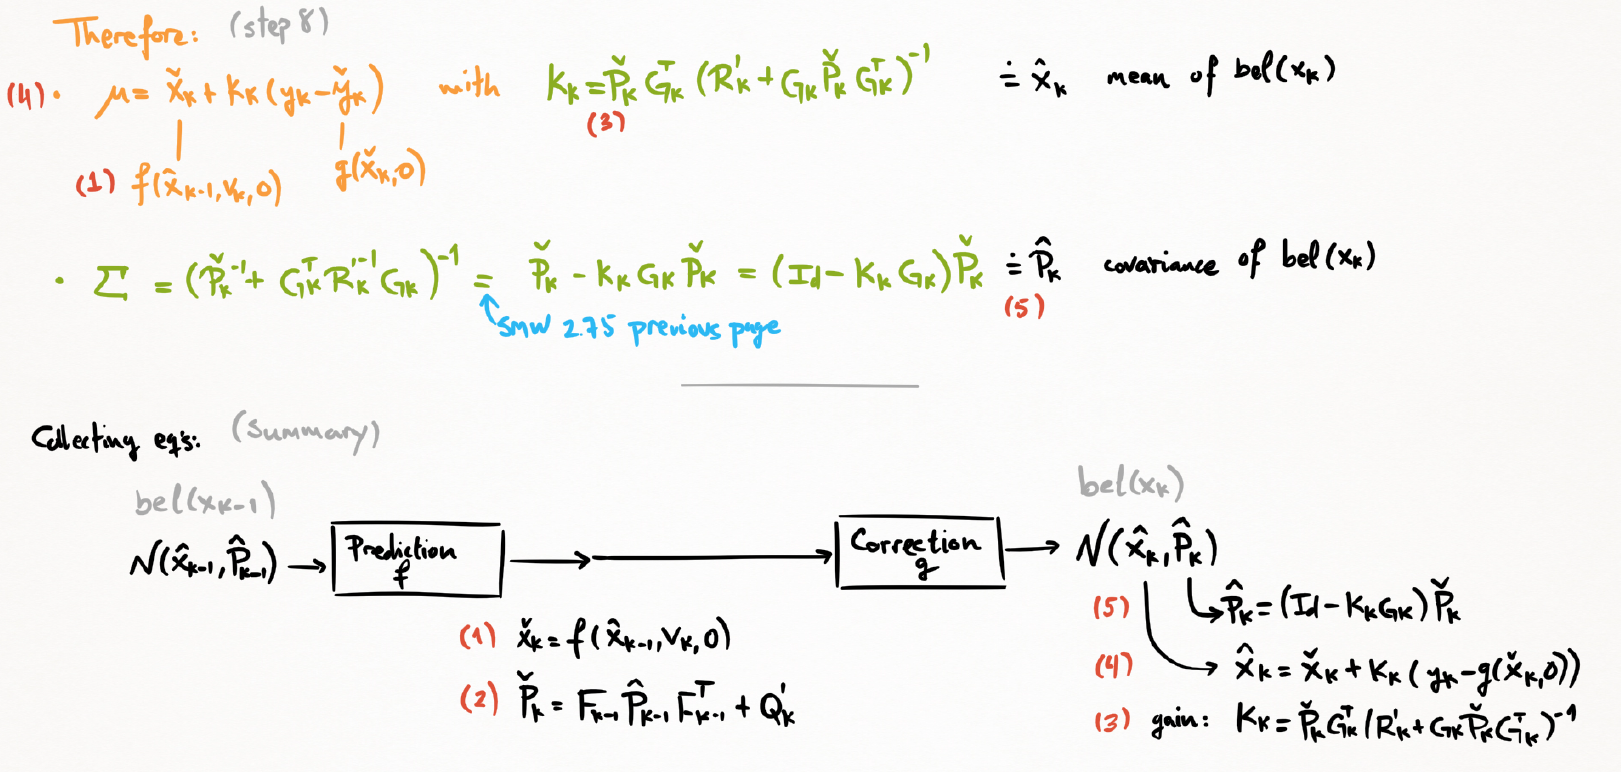 Therefore: (step 8)
(4) · μ = x̌ₖ + Kₖ (yₖ - y̌ₖ) with Kₖ = P̌ₖ Gₖᵀ (R'ₖ + Gₖ P̌ₖ Gₖᵀ)⁻¹ ≐ x̂ₖ mean of bel(xₖ)
(3)
(1) f(x̂ₖ₋₁, vₖ, 0) g(x̌ₖ, 0)
· Σ = (P̌ₖ⁻¹ + Gₖᵀ R'ₖ⁻¹ Gₖ)⁻¹ = P̌ₖ - Kₖ Gₖ P̌ₖ = (Id - Kₖ Gₖ) P̌ₖ ≐ P̂ₖ covariance of bel(xₖ)
(5)
SMW 2.75 previous page
Collecting eq's: (Summary)
bel(xₖ₋₁) bel(xₖ)
N(x̂ₖ₋₁, P̂ₖ₋₁) → Prediction f → → Correction g → N(x̂ₖ, P̂ₖ)
(1) x̌ₖ = f(x̂ₖ₋₁, vₖ, 0)
(2) P̌ₖ = Fₖ₋₁ P̂ₖ₋₁ Fₖ₋₁ᵀ + Q'ₖ
(5) P̂ₖ = (Id - Kₖ Gₖ) P̌ₖ
(4) x̂ₖ = x̌ₖ + Kₖ (yₖ - g(x̌ₖ, 0))
(3) gain: Kₖ = P̌ₖ Gₖᵀ (R'ₖ + Gₖ P̌ₖ Gₖᵀ)⁻¹